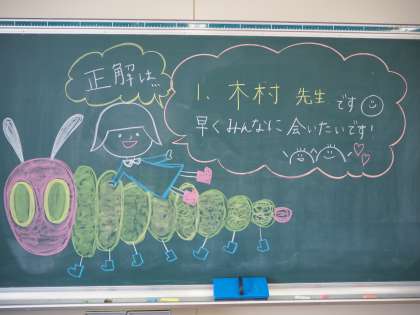 正解は…
1. 木村 先生 です
早くみんなに 会いたいです!